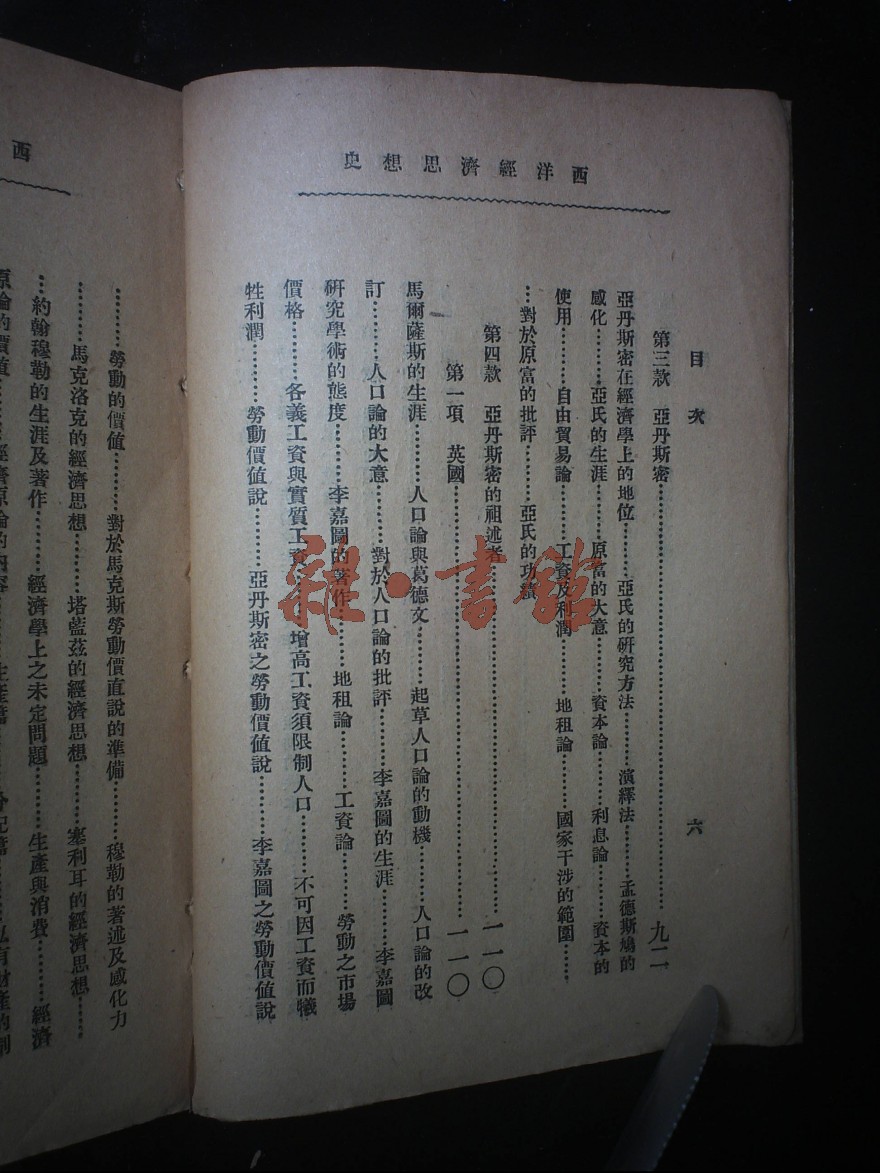 西洋經濟思想史
目次
六
第三款 亞丹斯密…………九二
亞丹斯密在經濟學上的地位………亞氏的研究方法………演釋法………孟德斯鳩的
感化………亞氏的生涯………原富的大意………資本論………利息論………資本的
使用………自由貿易論………工資及利潤………地租論………國家干涉的範圍………
…對於原富的批評………亞氏的功績
第四款 亞丹斯密的祖述者…………一一〇
第一項 英國…………一一〇
馬爾薩斯的生涯………人口論與葛德文………起草人口論的動機………人口論的改
訂………人口論的大意………對於人口論的批評………李嘉圖的生涯………李嘉圖
研究學術的態度………李嘉圖的著作………地租論………工資論………勞動之市場
價格………各義工資與實質工資………增高工資須限制人口………不可因工資而犧
牲利潤………勞動價值說………亞丹斯密之勞動價值說………李嘉圖之勞動價值說
西
…………勞動的價值………對於馬克斯勞動價直說的準備………穆勒的著述及感化力
…………馬克洛克的經濟思想………塔藍茲的經濟思想………塞利耳的經濟思想……
…約翰穆勒的生涯及著作………經濟學上之未定問題………生產與消費………經濟
原論的價值………經濟原論的內容………生產論………分配論………私有財產的
雜·書館